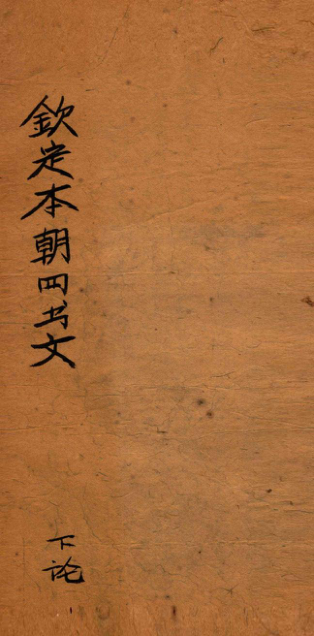 欽定本朝四书文
下论